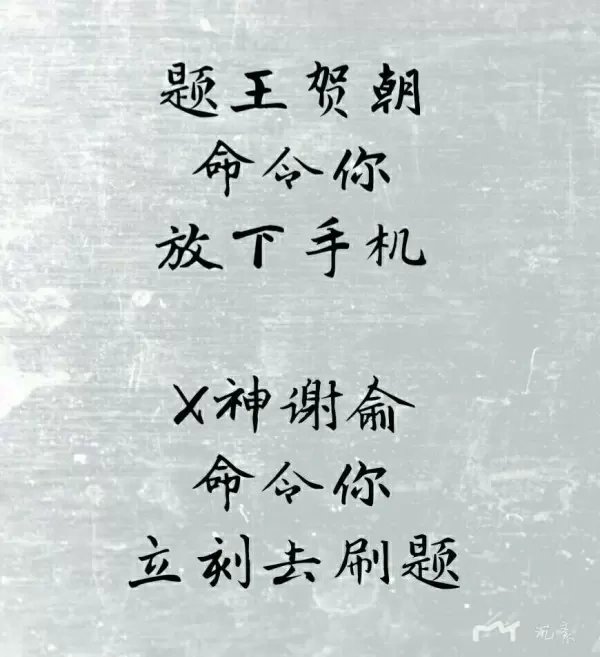 题王贺朝
命令你
放下手机
X神谢俞
命令你
立刻去刷题